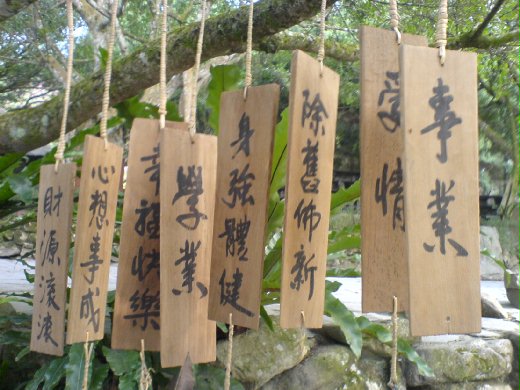 財源滾滾
心想事成
幸福快樂
學業
身強體健
除舊佈新
愛情
事業